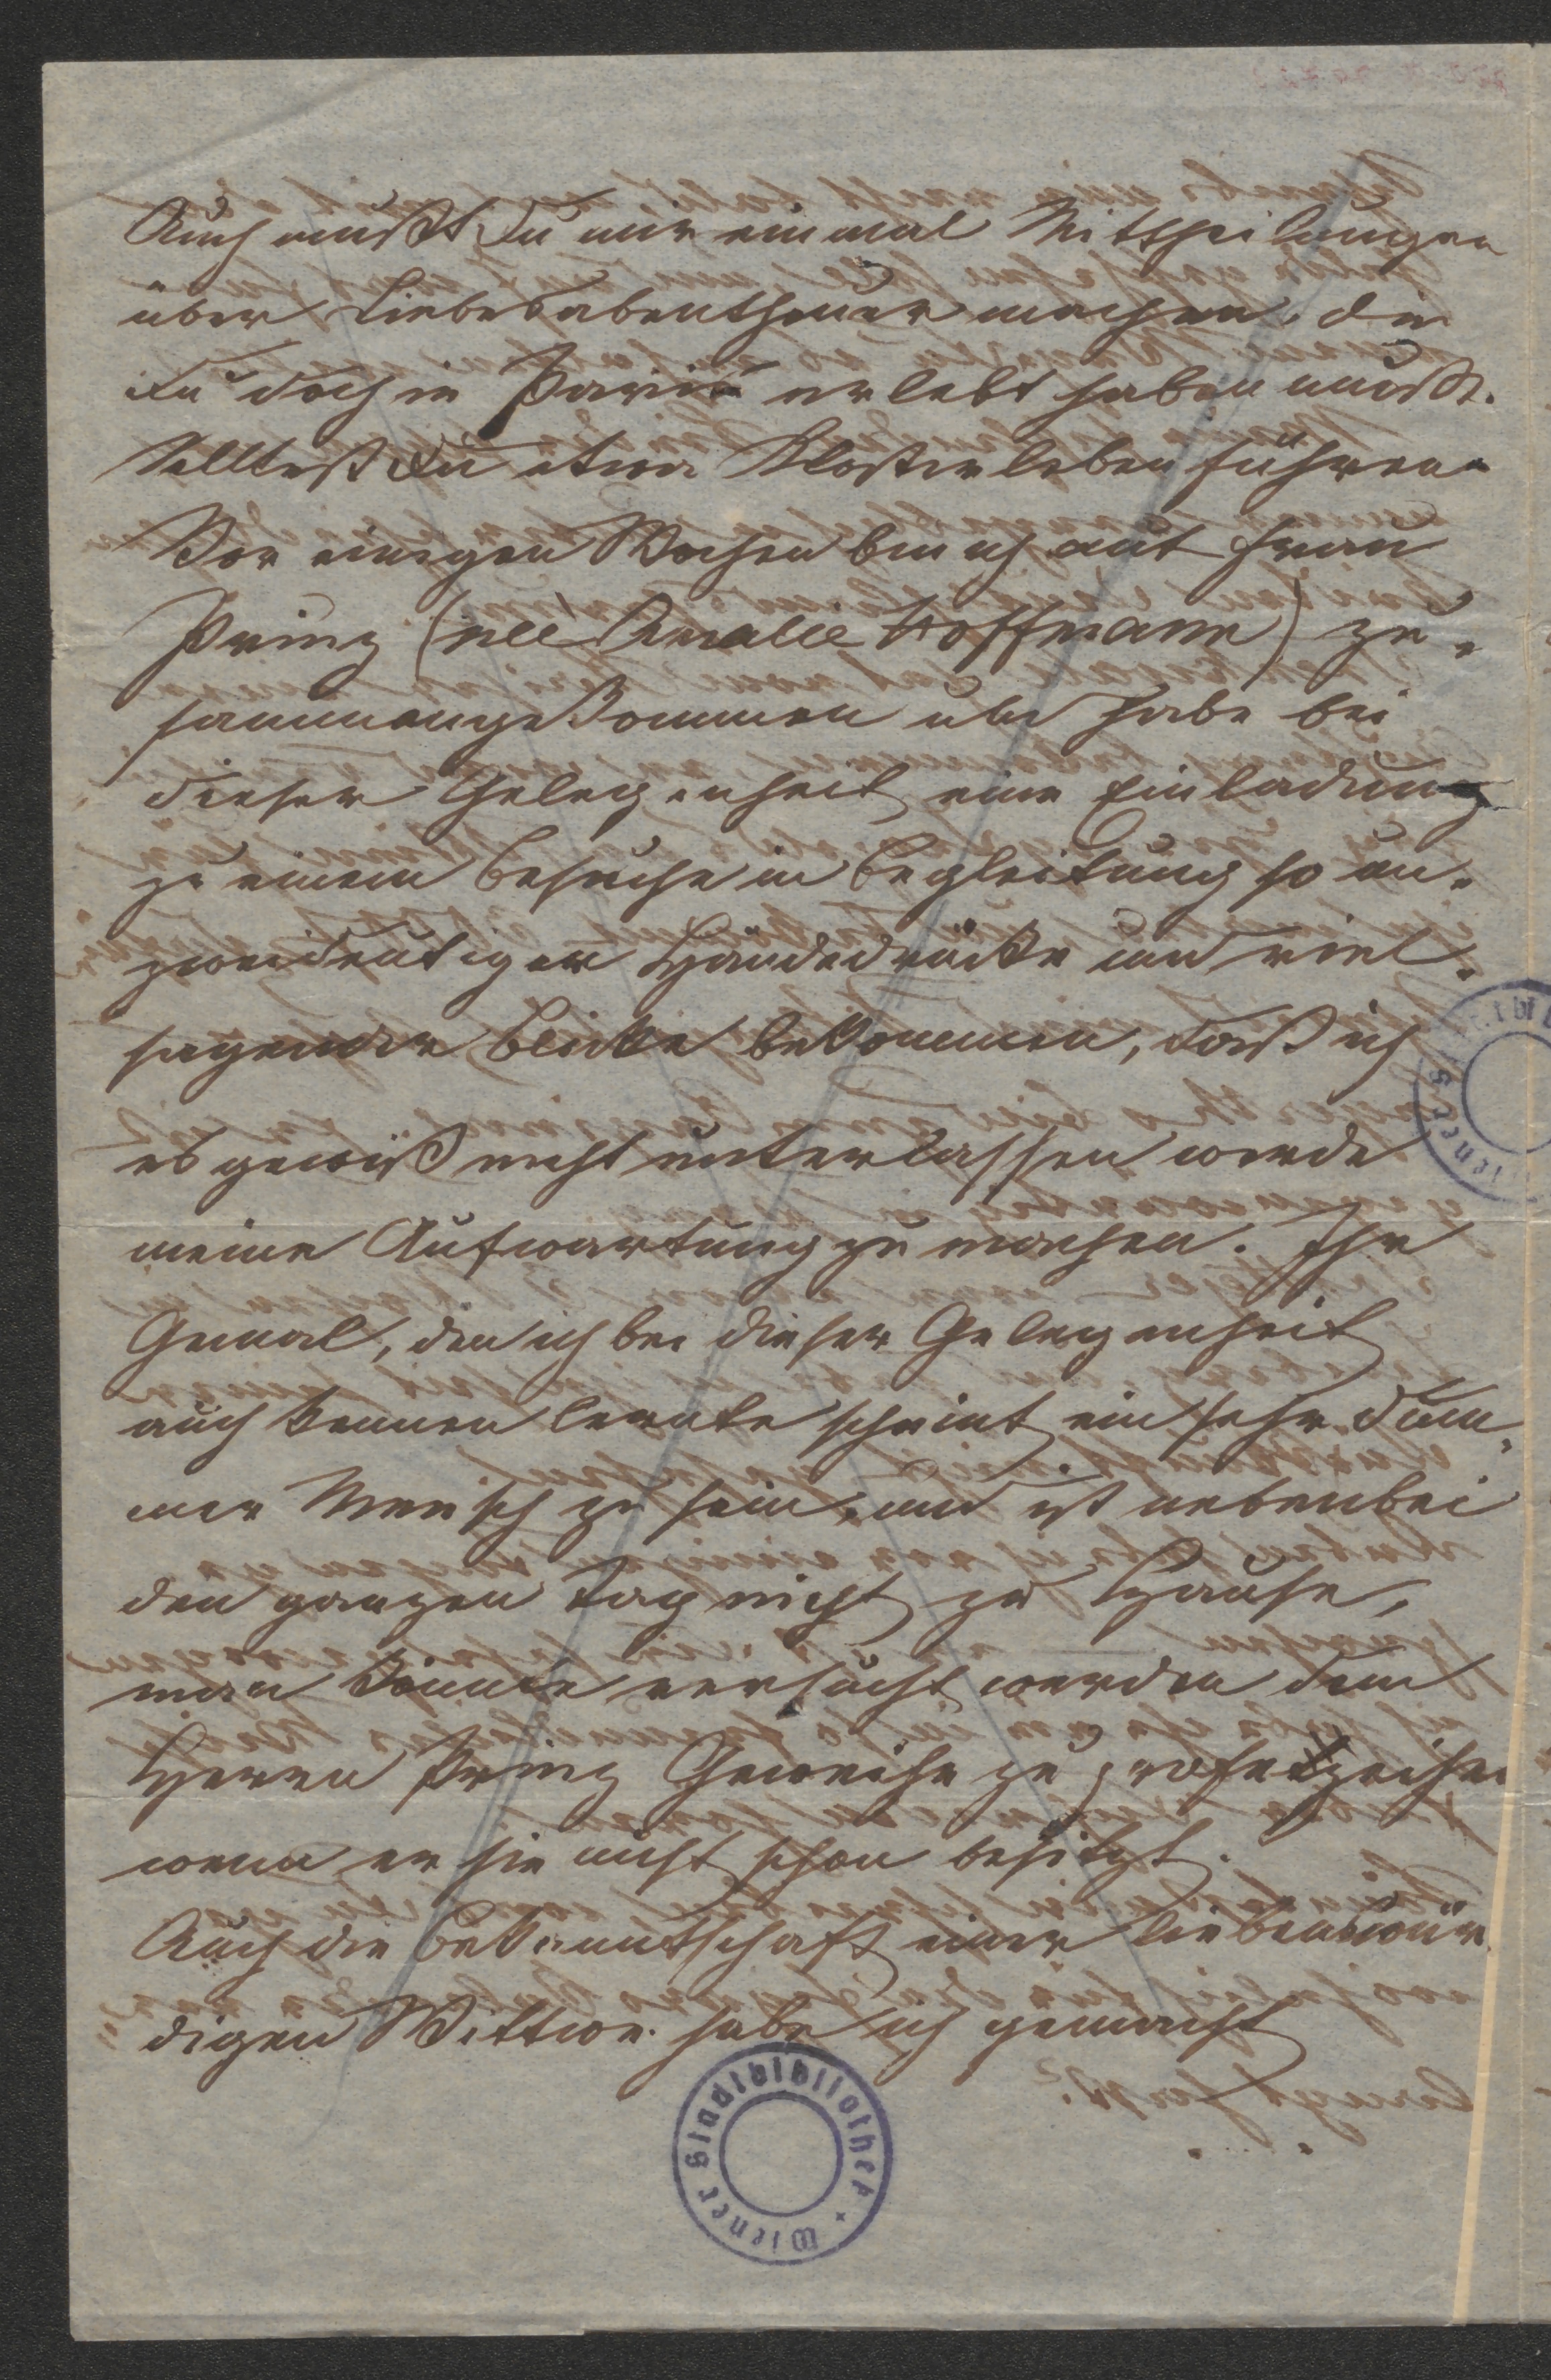 Auch mußt Du mir einmal Mittheilungen
über Liebesabentheuer machen, die
Du doch in Paris erlebt haben mußt.
Solltest Du etwa Klosterleben führen.
Vor einigen Wochen bin ich mit Frau
Prinz (née Amalie Hoffmann) zu-
sammengekommen und habe bei
dieser Gelegenheit eine Einladung
zu einem Besuche in Begleitung so un-
zweideutiger Händedrücke und viel-
sagender Blicke bekommen, daß ich
es gewiß nicht unterlassen werde
meine Aufwartung zu machen. Ihr
Gemal, den ich bei dieser Gelegenheit
auch kennen lernte scheint ein sehr dum-
mer Mensch zu sein, und ist nebenbei
den ganzen Tag nicht zu Hause,
man könnte versucht werden dem
Herrn Prinz Geweihe zu
wenn er sie nicht schon besitzt.
Auch die Bekanntschaft einer liebenswür-
digen Wittwe habe ich gemacht
Wiener Stadtbibliothek